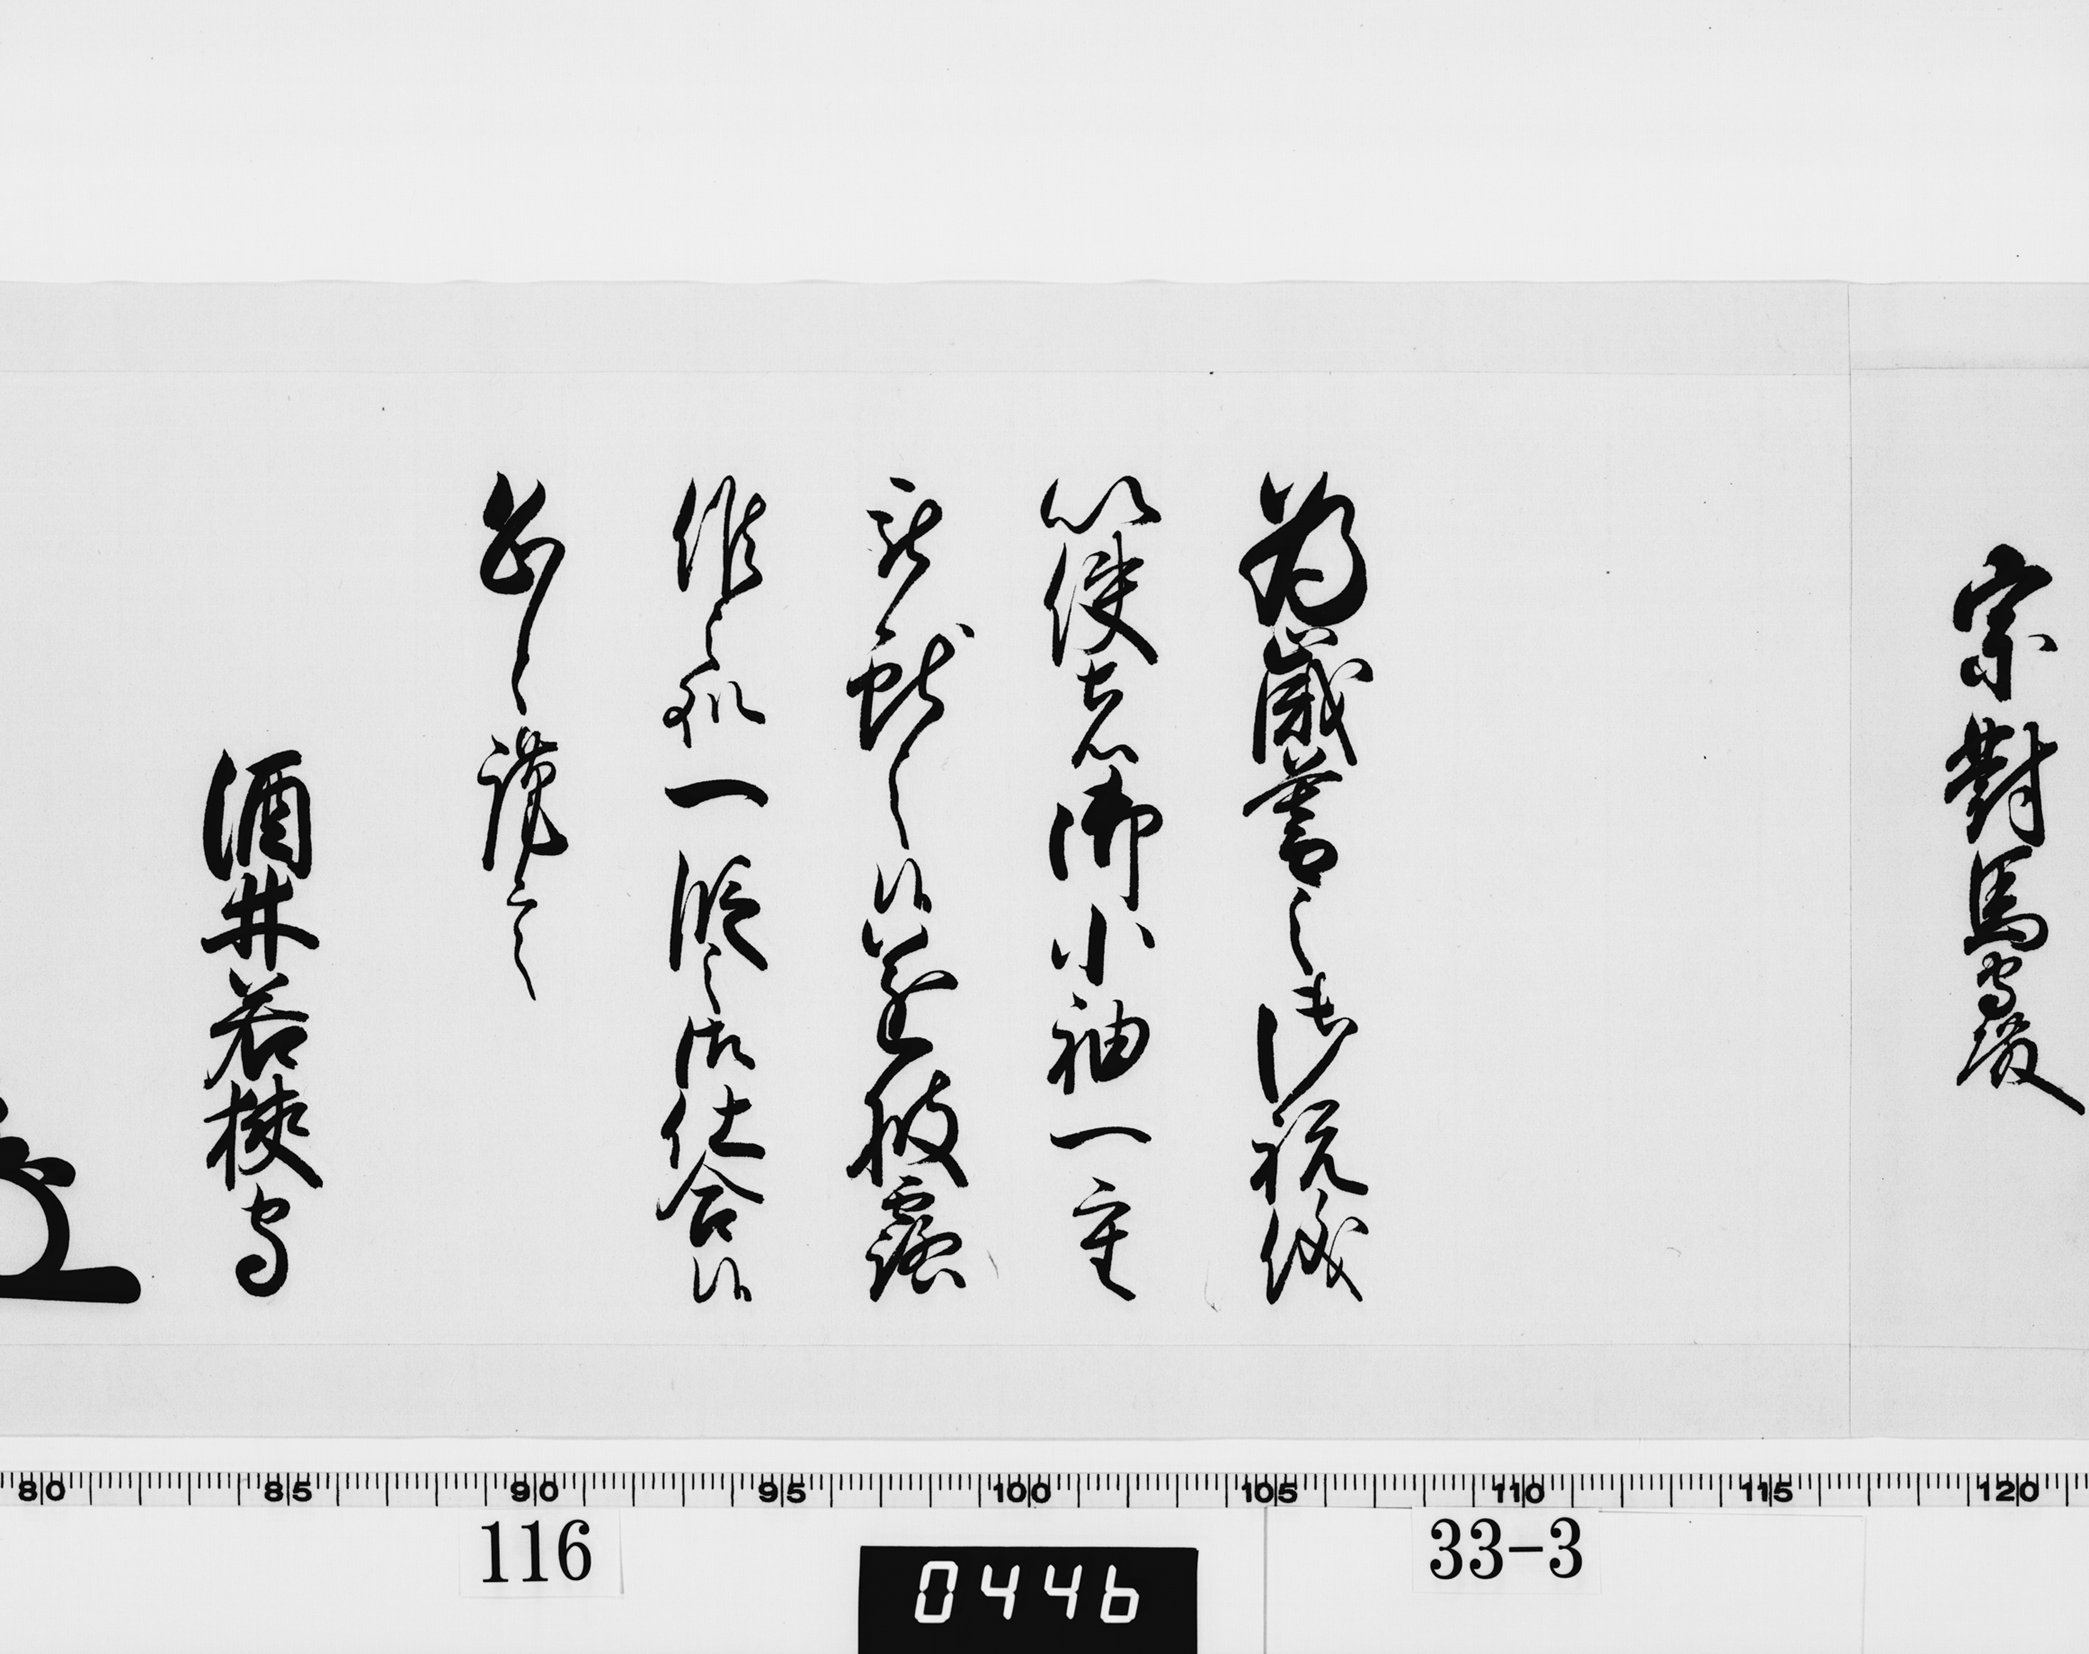 宗對馬守殿
為歳暮之御祝儀
以使者御小袖一重
被献之候遂披露
候之処一段之御仕合候
恐々謹言
酒井若狭守
80 85 90 95 100 105 110 115 120
116
0446
33-3